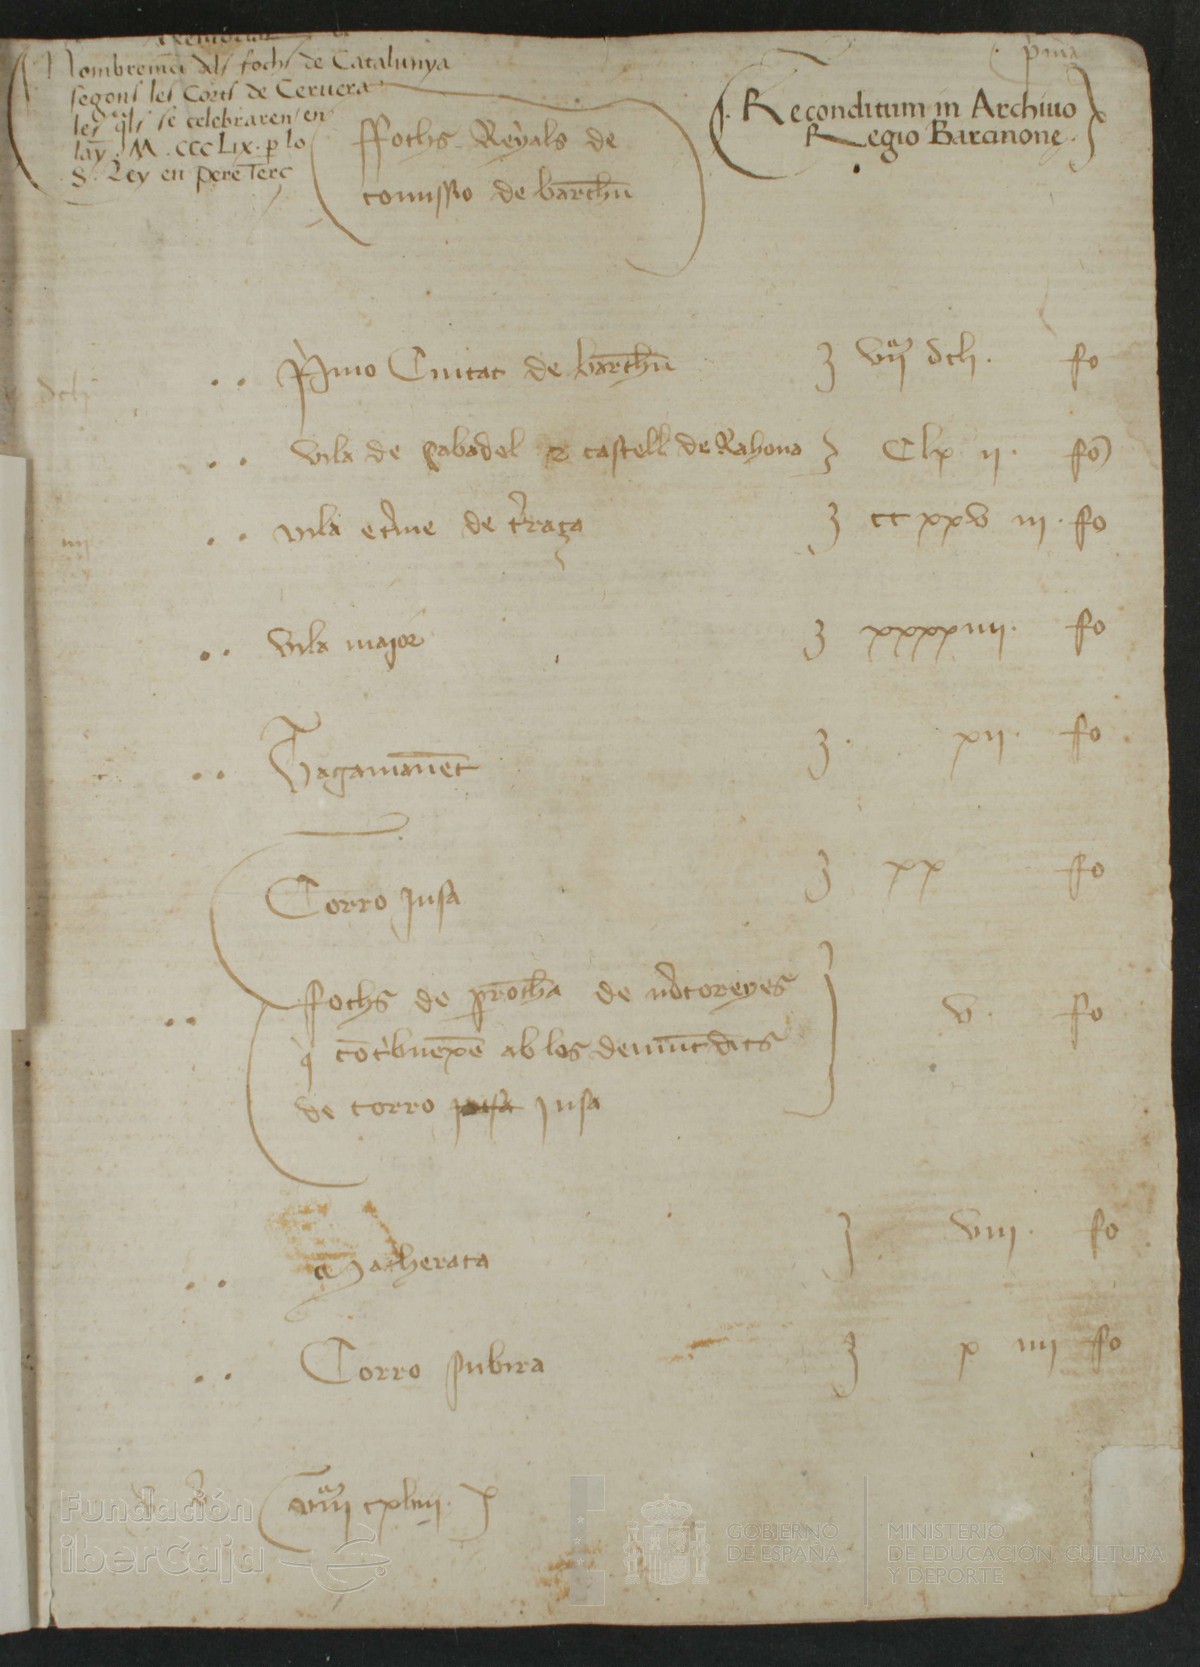 Nombrem̄t dels fochs de Catalunya
segons les Corts de Ceruera
les q̄ls se celebraren en
lāy M.CCCLIX. p lo
S. Rey en Pere Terc
ffochs Reyals de
comissio de barchn̄
Reconditum in Archiuo
Regio Barcinone.
Primo Ciutat de barchn̄ vij dch. fo
vila de Sabadel & castell de Rahona Clx ii. fo
vila e t'me de t'raça cc xxv iii. fo
vila major xxxxiiii. fo
Tagamanēt xii. fo
Corro jusa xx fo
fochs de
q̄ cōt'buexē ab los demūt dits v. fo
de corro jusa jusa
Macherata viii. fo
Corro subira x iiii fo
viij cxlviii.
Fundación
iberCaja
GOBIERNO
DE ESPAÑA
MINISTERIO
DE EDUCACIÓN, CULTURA
Y DEPORTE